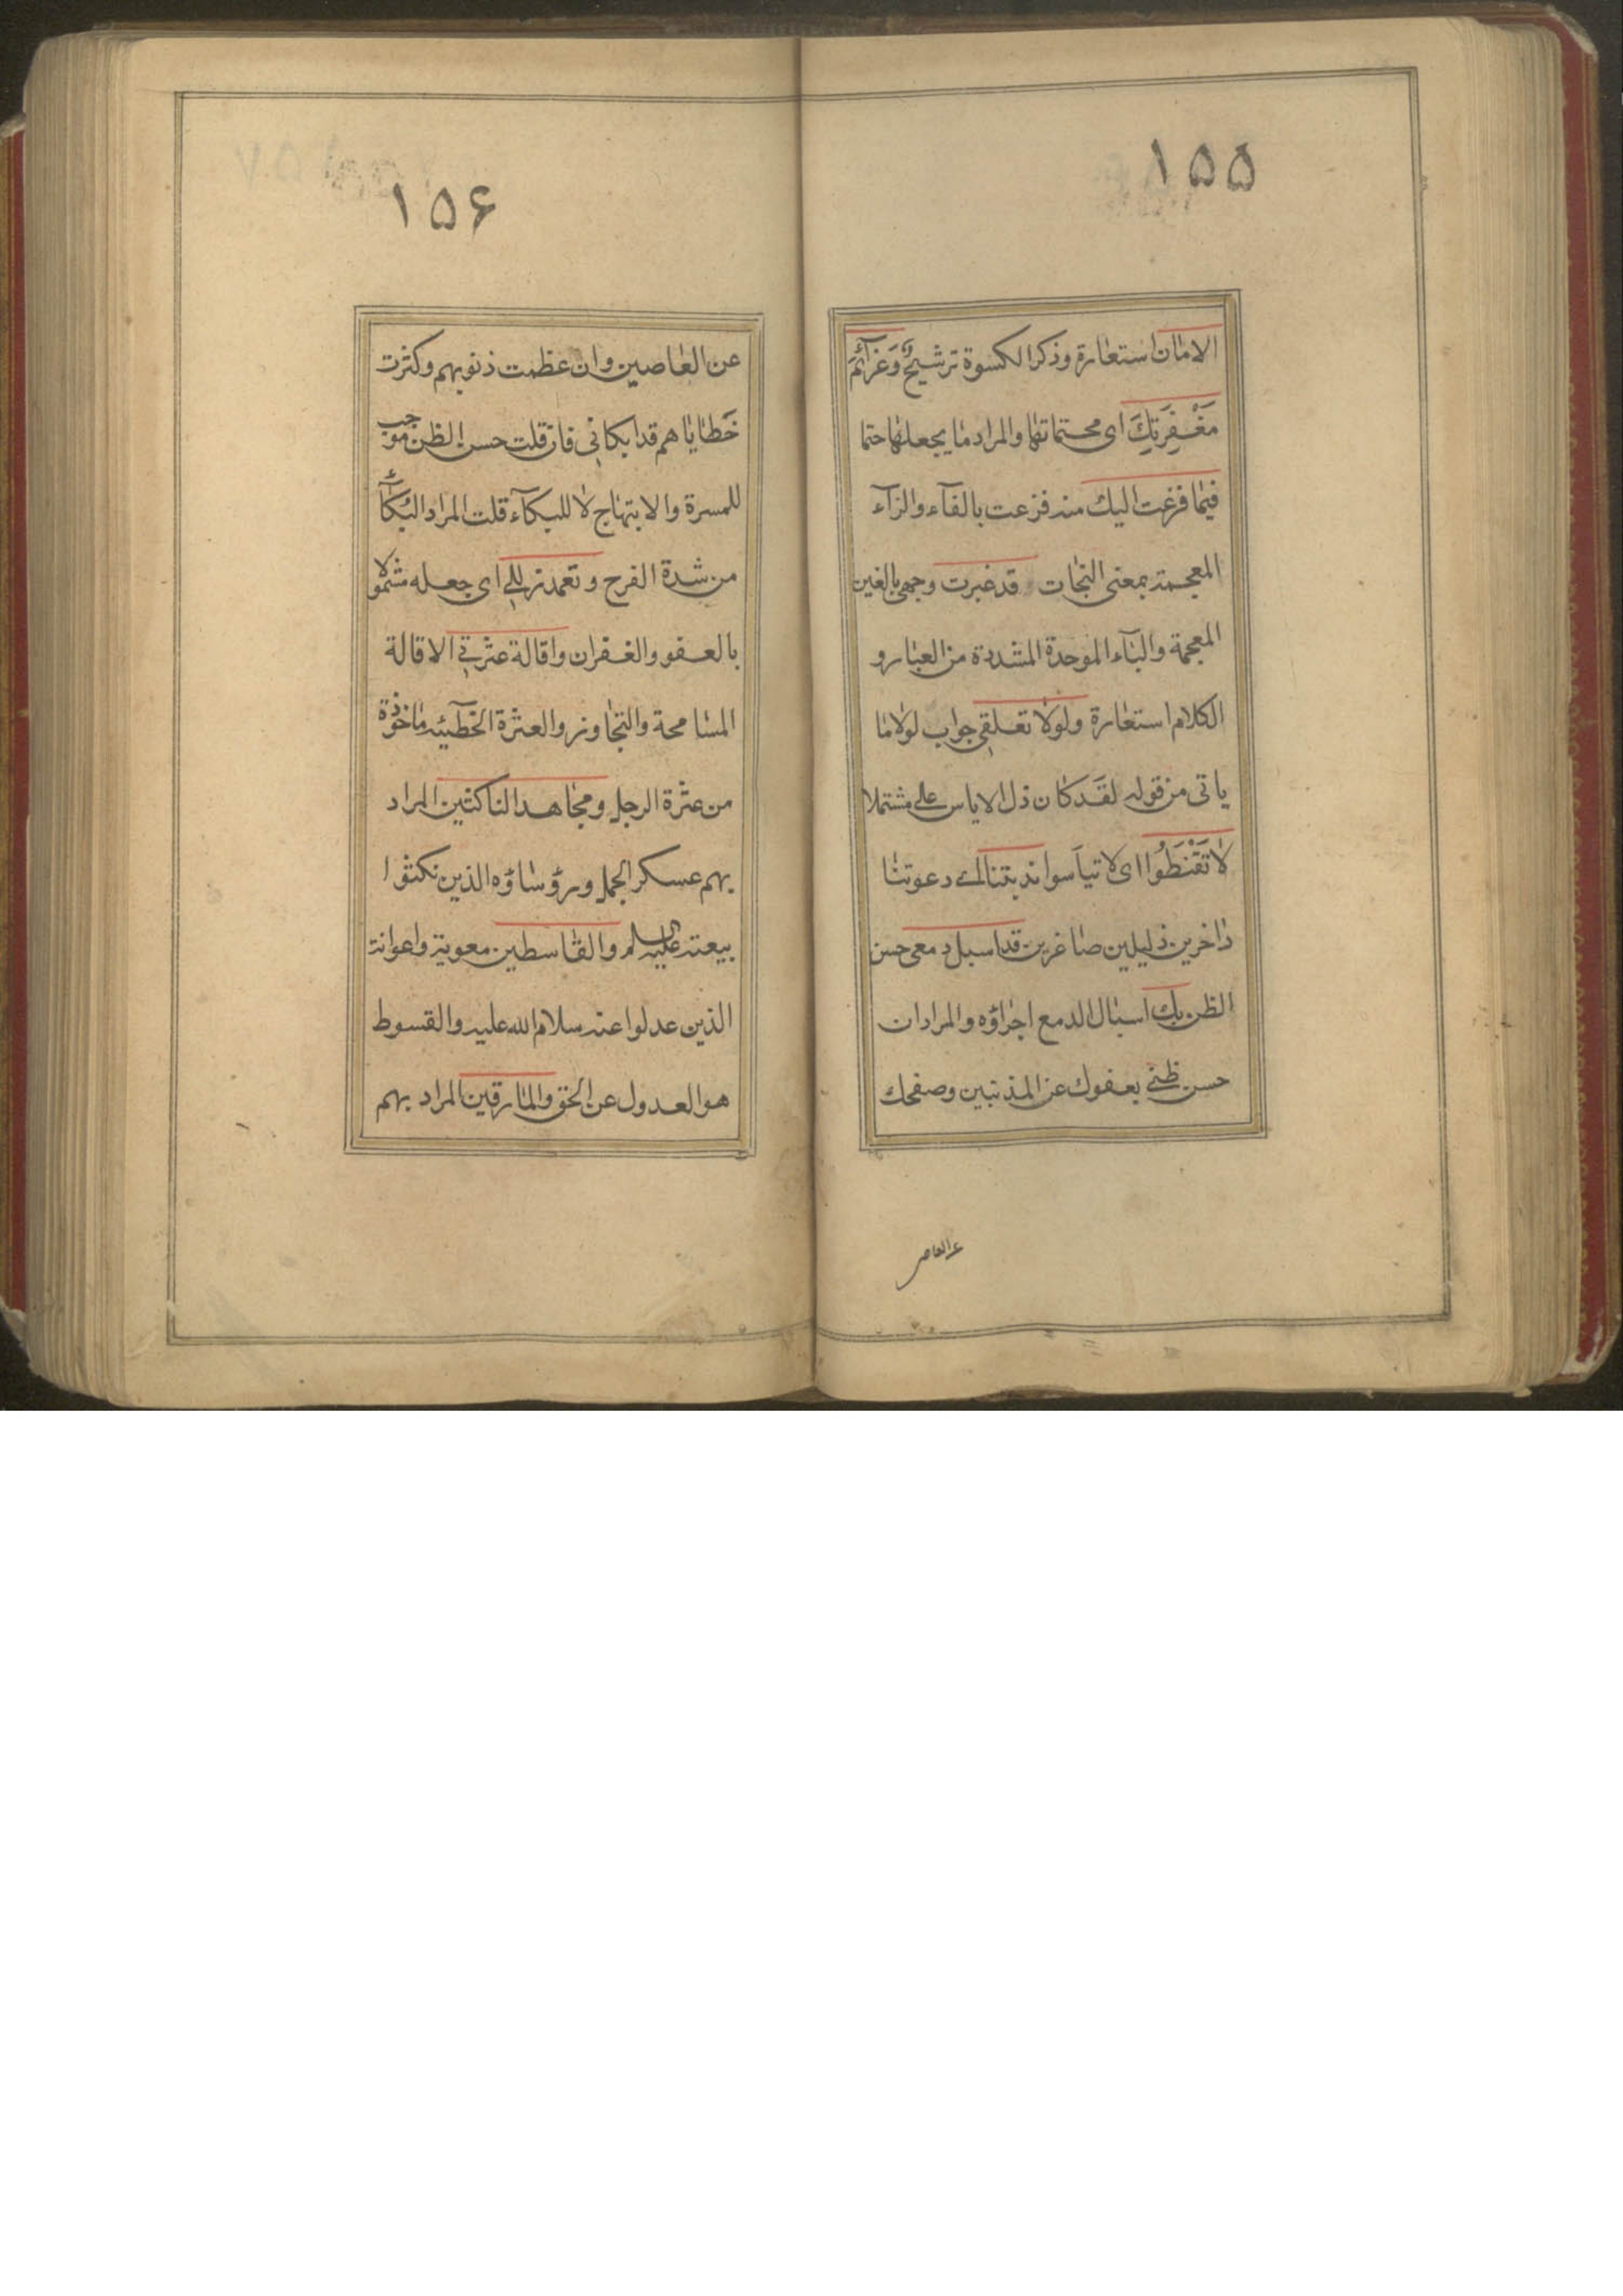 ١۵۵
الامان استعارة وذكر الكسوة ترشيحٌ وَعَزآئمَ
مَغْفِرَتِكَ اى محتماتها والمراد ما يجعلها حتما
فيما فزعت اليك منه فزعت بالفآء والزآء
المعجمة بمعنى النجات قد غبرت وجهى بالغين
المعجمة والبآء الموحدة المشددة من الغبار و
الكلام استعارة ولولا تعلقى جواب لولا ما
ياتى من قوله لقد كان ذل الاياس على مشتملا
لا تَقْنَطُوا اى لا تيأسوا ندبتنا اى دعوتنا
داخرين ذليلين صاغرين قد اسبل دمعى حسن
الظن بك اسبال الدمع اجراؤه والمراد ان
حسن ظنى بعفوك عن المذنبين وصفحك
عن العاصين
١۵۶
عن العاصين وان عظمت ذنوبهم وكثرت
خَطاياهم قد ابكانى فان قلت حسن الظن موجب
للمسرة والابتهاج لا للبكآء قلت المراد البُكآء
من شدة الفرح وتغمد زللى اى جعله مشمولا
بالعفو والغفران واقالة عثرتى الاقالة
المسامحة والتجاوز والعثرة الخطيئة ماخوذة
من عثرة الرجل ومجاهد الناكثين المراد
بهم عسكر الجمل ورؤساؤه الذين نكثوا
بيعته عليه السلم والقاسطين معوية واعوانه
الذين عدلوا عنه سلام الله عليه والقسوط
هو العدول عن الحق والمارقين المراد بهم